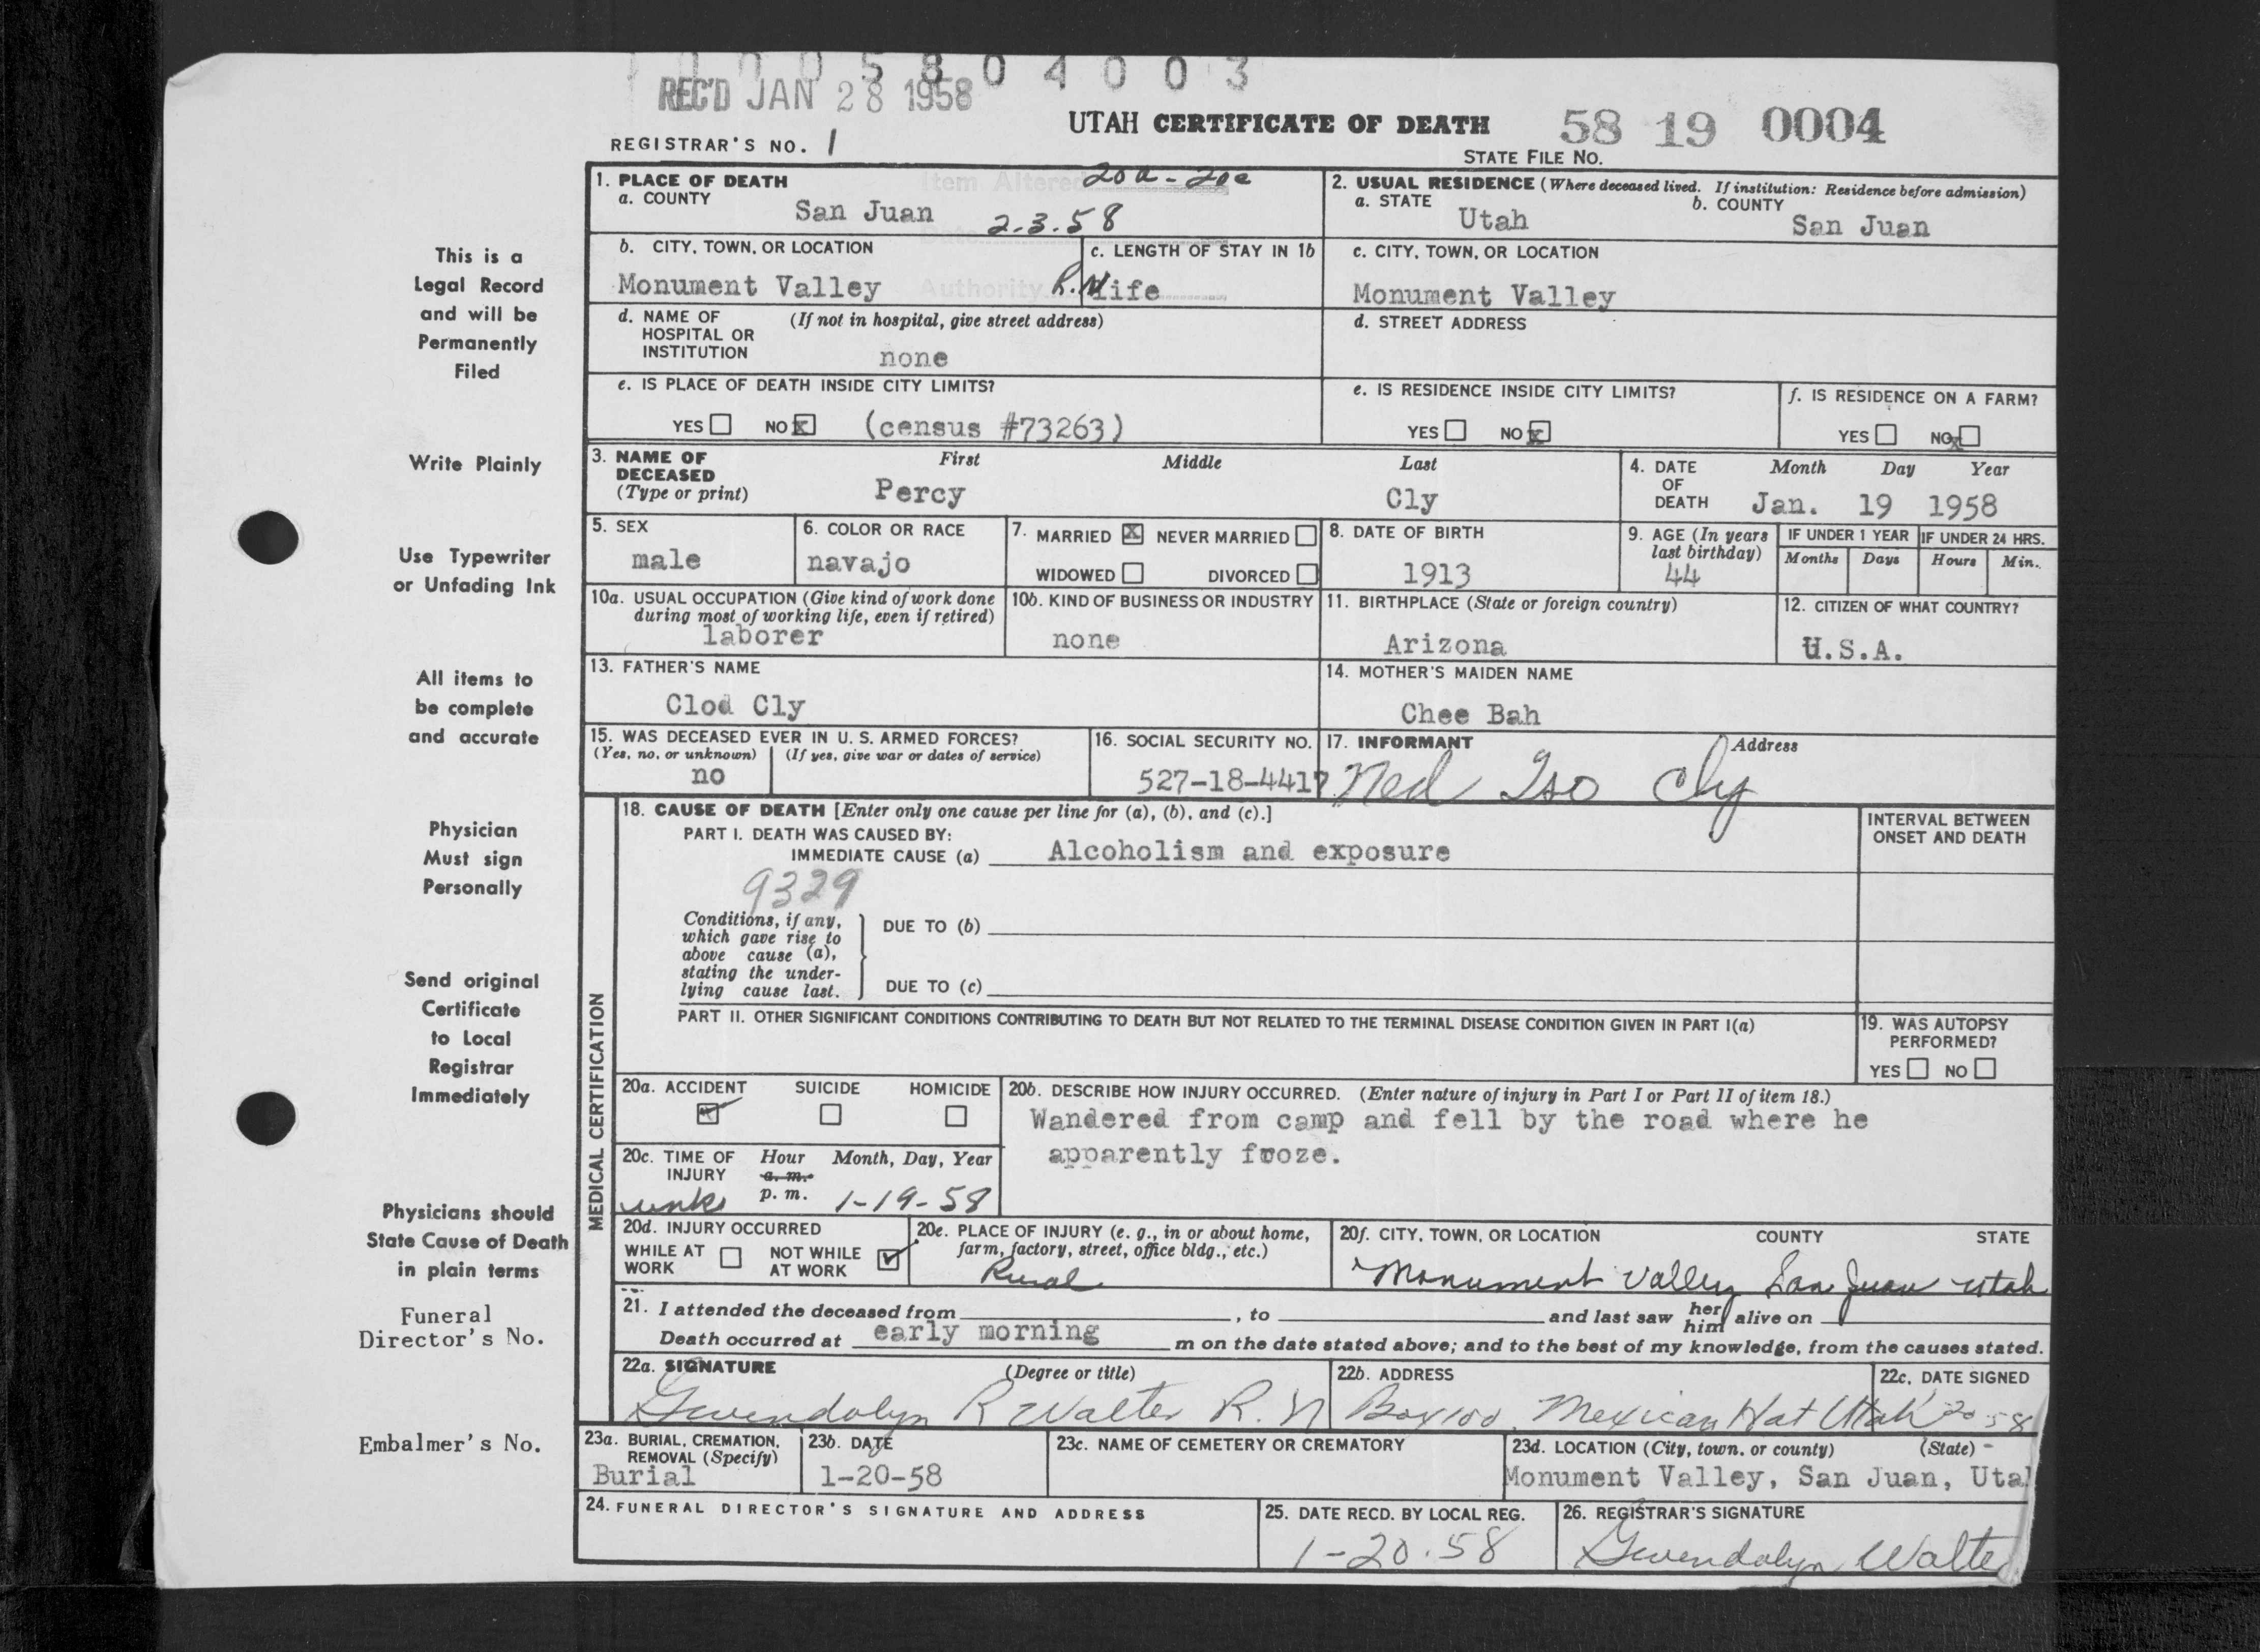 1 0 0 0 5 8 0 4 0 0 3
REC'D JAN 28 1958
UTAH CERTIFICATE OF DEATH 58 19 0004
REGISTRAR'S NO. 1
STATE FILE NO.
This is a
Legal Record
and will be
Permanently
Filed
Write Plainly
Use Typewriter
or Unfading Ink
All items to
be complete
and accurate
Physician
Must sign
Personally
Send original
Certificate
to Local
Registrar
Immediately
Physicians should
State Cause of Death
in plain terms
Funeral
Director's No.
Embalmer's No.
1. PLACE OF DEATH
Item Altered 20a - 20e
a. COUNTY
San Juan
Date 2.3.58
2. USUAL RESIDENCE (Where deceased lived. If institution: Residence before admission)
a. STATE b. COUNTY
Utah San Juan
b. CITY, TOWN, OR LOCATION
Monument Valley
Authority R.N
c. LENGTH OF STAY IN 1b
life
c. CITY, TOWN, OR LOCATION
Monument Valley
d. NAME OF (If not in hospital, give street address)
HOSPITAL OR
INSTITUTION
none
d. STREET ADDRESS
e. IS PLACE OF DEATH INSIDE CITY LIMITS?
YES NO x (census #73263)
e. IS RESIDENCE INSIDE CITY LIMITS?
YES NO x
f. IS RESIDENCE ON A FARM?
YES NO x
3. NAME OF First Middle Last
DECEASED
(Type or print) Percy Cly
4. DATE Month Day Year
OF
DEATH Jan. 19 1958
5. SEX
male
6. COLOR OR RACE
navajo
7. MARRIED X NEVER MARRIED
WIDOWED DIVORCED
8. DATE OF BIRTH
1913
9. AGE (In years
last birthday)
44
IF UNDER 1 YEAR IF UNDER 24 HRS.
Months Days Hours Min.
10a. USUAL OCCUPATION (Give kind of work done
during most of working life, even if retired)
laborer
10b. KIND OF BUSINESS OR INDUSTRY
none
11. BIRTHPLACE (State or foreign country)
Arizona
12. CITIZEN OF WHAT COUNTRY?
U.S.A.
13. FATHER'S NAME
Clod Cly
14. MOTHER'S MAIDEN NAME
Chee Bah
15. WAS DECEASED EVER IN U. S. ARMED FORCES?
(Yes, no, or unknown) (If yes, give war or dates of service)
no
16. SOCIAL SECURITY NO.
527-18-4417
17. INFORMANT Address
Ned Tso Cly
MEDICAL CERTIFICATION
18. CAUSE OF DEATH [Enter only one cause per line for (a), (b), and (c).]
PART I. DEATH WAS CAUSED BY:
IMMEDIATE CAUSE (a) Alcoholism and exposure
INTERVAL BETWEEN
ONSET AND DEATH
9329
Conditions, if any,
which gave rise to
above cause (a),
stating the under-
lying cause last.
DUE TO (b)
DUE TO (c)
PART II. OTHER SIGNIFICANT CONDITIONS CONTRIBUTING TO DEATH BUT NOT RELATED TO THE TERMINAL DISEASE CONDITION GIVEN IN PART I(a)
19. WAS AUTOPSY
PERFORMED?
YES NO
20a. ACCIDENT SUICIDE HOMICIDE
20b. DESCRIBE HOW INJURY OCCURRED. (Enter nature of injury in Part I or Part II of item 18.)
Wandered from camp and fell by the road where he
apparently froze.
20c. TIME OF Hour Month, Day, Year
INJURY a. m.
unk p. m. 1-19-58
20d. INJURY OCCURRED
WHILE AT WORK NOT WHILE AT WORK
20e. PLACE OF INJURY (e. g., in or about home,
farm, factory, street, office bldg., etc.)
Rural
20f. CITY, TOWN, OR LOCATION COUNTY STATE
Monument Valley San Juan Utah
21. I attended the deceased from , to and last saw her him alive on
Death occurred at early morning m on the date stated above; and to the best of my knowledge, from the causes stated.
22a. SIGNATURE (Degree or title)
Gwendolyn R Walter R.N
22b. ADDRESS
Box 100 Mexican Hat Utah
22c. DATE SIGNED
20 58
23a. BURIAL, CREMATION,
REMOVAL (Specify)
Burial
23b. DATE
1-20-58
23c. NAME OF CEMETERY OR CREMATORY
23d. LOCATION (City, town, or county) (State)
Monument Valley, San Juan, Uta
24. FUNERAL DIRECTOR'S SIGNATURE AND ADDRESS
25. DATE RECD. BY LOCAL REG.
1-20.58
26. REGISTRAR'S SIGNATURE
Gwendolyn Walter